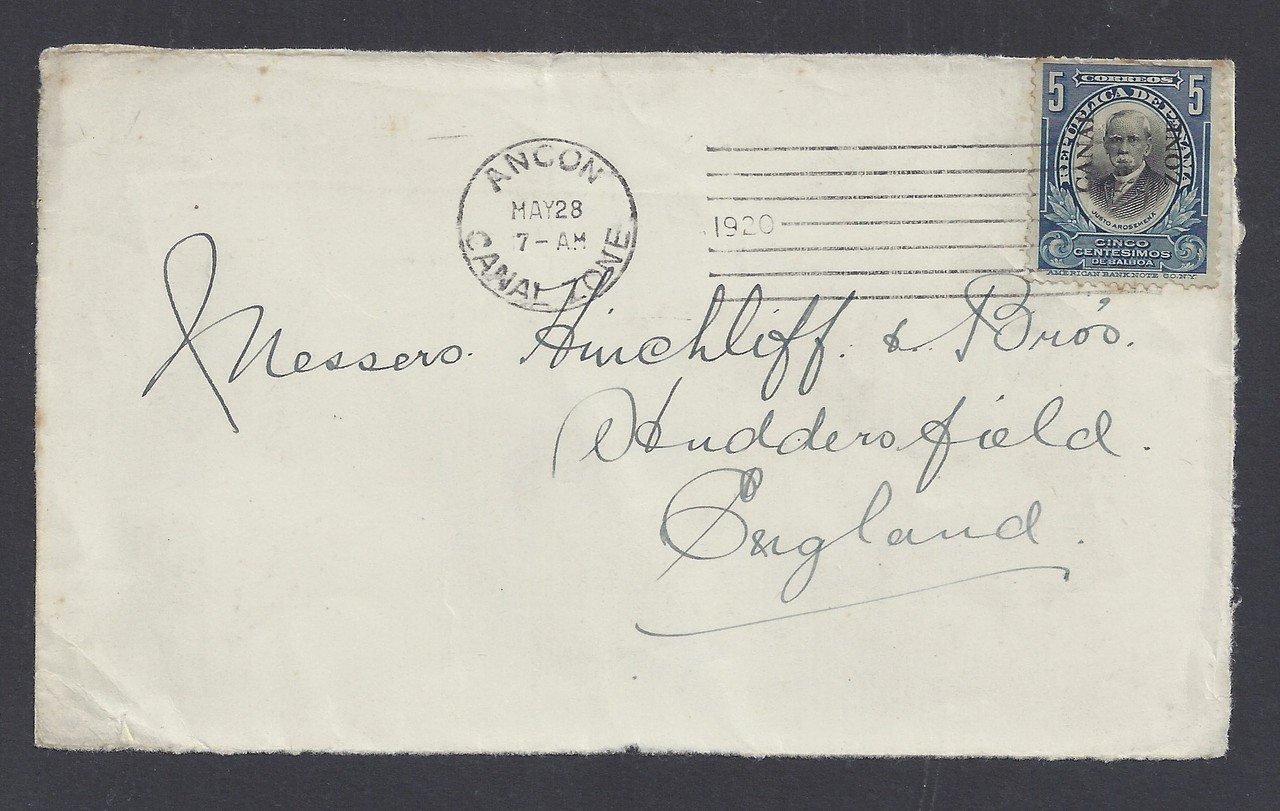 ANCON
MAY 28
7-AM
CANAL ZONE
1920
CORREOS
5 5
REPUBLICA DE PANAMA
CANAL ZONE
JUSTO AROSEMENA
CINCO
CENTESIMOS
DE BALBOA
AMERICAN BANK NOTE CO. N.Y.
Messers. Hinchliff. & Bro's.
Huddersfield.
England.